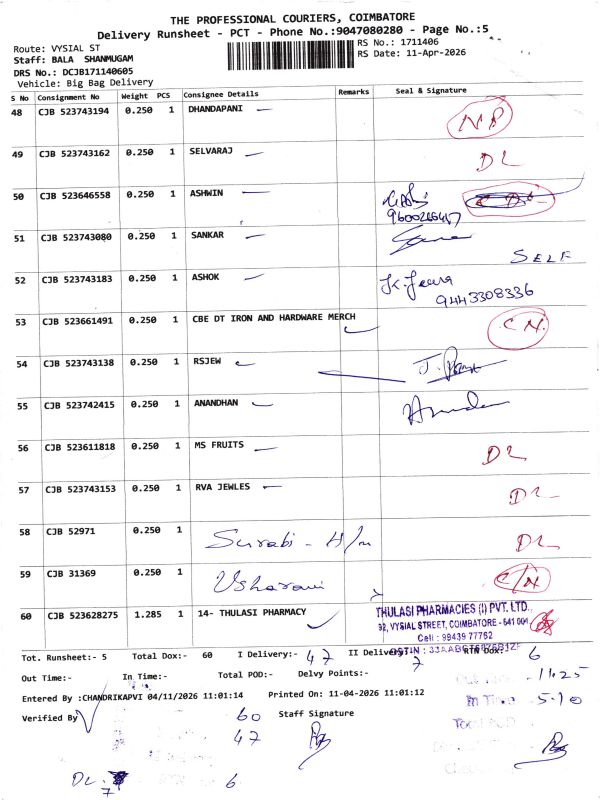 THE PROFESSIONAL COURIERS, COIMBATORE
Delivery Runsheet - PCT - Phone No.:9047080280 - Page No.:5
Route: VYSIAL ST
RS No.: 1711406
Staff: BALA SHANMUGAM
RS Date: 11-Apr-2026
DRS No.: DCJB171140605
Vehicle: Big Bag Delivery
S No Consignment No Weight PCS Consignee Details Remarks Seal & Signature
48 CJB 523743194 0.250 1 DHANDAPANI
49 CJB 523743162 0.250 1 SELVARAJ DL
50 CJB 523646558 0.250 1 ASHWIN
51 CJB 523743080 0.250 1 SANKAR
SELF
52 CJB 523743183 0.250 1 ASHOK
9443308336
53 CJB 523661491 0.250 1 CBE DT IRON AND HARDWARE MERCH C N.
54 CJB 523743138 0.250 1 RSJEW
55 CJB 523742415 0.250 1 ANANDHAN
56 CJB 523611818 0.250 1 MS FRUITS DL
57 CJB 523743153 0.250 1 RVA JEWLES DL
58 CJB 52971 0.250 1 Surabi - H/m DL
59 CJB 31369 0.250 1 Usharani C/N
60 CJB 523628275 1.285 1 14- THULASI PHARMACY
THULASI PHARMACIES (I) PVT. LTD.,
92, VYSIAL STREET, COIMBATORE - 641 001.
Cell : 98439 77762
Tot. Runsheet:- 5 Total Dox:- 60 I Delivery:- 47 II Delivery:- 7 RTN Dox:- 6
Out Time:- In Time:- Total POD:- Delvy Points:-
11.25
Entered By :CHANDRIKAPVI 04/11/2026 11:01:14 Printed On: 11-04-2026 11:01:12
In Time 5.10
Verified By 60 Staff Signature
47
DL 7 6